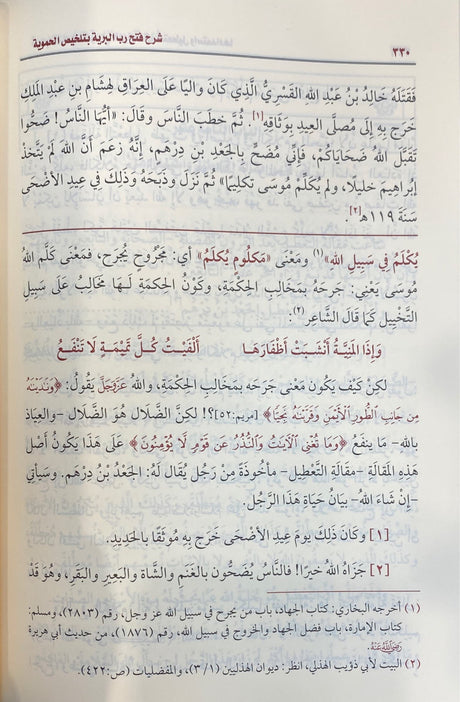 ٣٣٠ شرح فتح رب البرية بتلخيص الحموية
فَقَتَلَهُ خَالِدُ بْنُ عَبْدِ اللهِ القَسْرِيُّ الَّذِي كَانَ وَالِيًا عَلَى العِرَاقِ لِهِشَامِ بنِ عَبْدِ المَلِكِ
خَرَجَ بِهِ إِلَى مُصَلَّى العِيدِ بِوَثَاقِهِ[١]. ثُمَّ خَطَبَ النَّاسَ وَقَالَ: «أَيُّهَا النَّاسُ! ضَحُّوا
تَقَبَّلَ اللهُ ضَحَايَاكُمْ، فَإِنِّي مُضَحٍّ بِالجَعْدِ بْنِ دِرْهَمٍ، إِنَّهُ زَعَمَ أَنَّ اللهَ لَمْ يَتَّخِذْ
إِبْرَاهِيمَ خَلِيلًا، وَلَمْ يُكَلِّمْ مُوسَى تَكْلِيمًا» ثُمَّ نَزَلَ وَذَبَحَهُ وَذَلِكَ فِي عِيدِ الأَضْحَى
سَنَةَ ١١٩هـ[٢].
يُكْلَمُ فِي سَبِيلِ اللهِ»(١) وَمَعْنَى «مَكْلُومٍ يُكْلَمُ» أي: مَجْرُوحٍ يُجرَح، فمَعْنَى كَلَّم اللهُ
مُوسَى يَعْنِي: جَرَحَهُ بِمَخَالِبِ الحِكْمَةِ، وكَوْنُ الحِكمَةِ لَـهَا مَخالِبُ عَلَى سَبِيلِ
التَّخْيِيلِ كَمَا قَالَ الشَّاعِر(٢):
وَإِذَا المَنِيَّةُ أَنْشَبَتْ أَظْفَارَهَا أَلْفَيْتُ كُلَّ تَمِيمَةٍ لَا تَنْفَعُ
لكِنْ كَيْفَ يَكُونُ مَعْنى جَرَحَه بمَخَالِبِ الحِكْمَةِ، واللهُ عَزَّوَجَلَّ يَقُولُ: ﴿وَنَٰدَيْنَٰهُ
مِن جَانِبِ ٱلطُّورِ ٱلْأَيْمَنِ وَقَرَّبْنَٰهُ نَجِيًّا﴾ [مريم:٥٢]؟! لكنَّ الضَّلَال هُوَ الضَّلَال -والعِيَاذ
بِالله- مَا ينفَعُ ﴿وَمَا تُغْنِي ٱلْءَايَٰتُ وَٱلنُّذُرُ عَن قَوْمٍ لَّا يُؤْمِنُونَ﴾ عَلَى هَذَا يَكُونُ أَصْل
هَذِهِ المَقَالَةِ -مقَالَةِ التَّعْطِيلِ- مَأخُوذَةً مِنْ رَجُلٍ يُقَال لَهُ: الجَعْدُ بْنُ دِرْهَمٍ. وسَيأتِي
-إِنْ شَاءَ اللهُ- بيَانُ حيَاةِ هَذَا الرَّجُلِ.
[١] وكَانَ ذَلِكَ يومَ عيدِ الأضْحَى خَرَج بِهِ مُوثَقًا بالحَدِيدِ.
[٢] جَزَاهُ اللهُ خيرًا! فالنَّاسُ يُضَحُّون بالغَنَمِ والشَّاة والبَعِير والبَقَرِ، وهُوَ قَدْ
(١) أخرجه البخاري: كتاب الجهاد، باب من يجرح في سبيل الله عز وجل، رقم (٢٨٠٣)، ومسلم:
كتاب الإمارة، باب فضل الجهاد والخروج في سبيل الله، رقم (١٨٧٦)، من حديث أبي هريرة
رَضِيَ اللَّهُ عَنْهُ.
(٢) البيت لأبي ذؤيب الهذلي، انظر: ديوان الهذليين (١/ ٣)، والمفضليات (ص:٤٢٢).